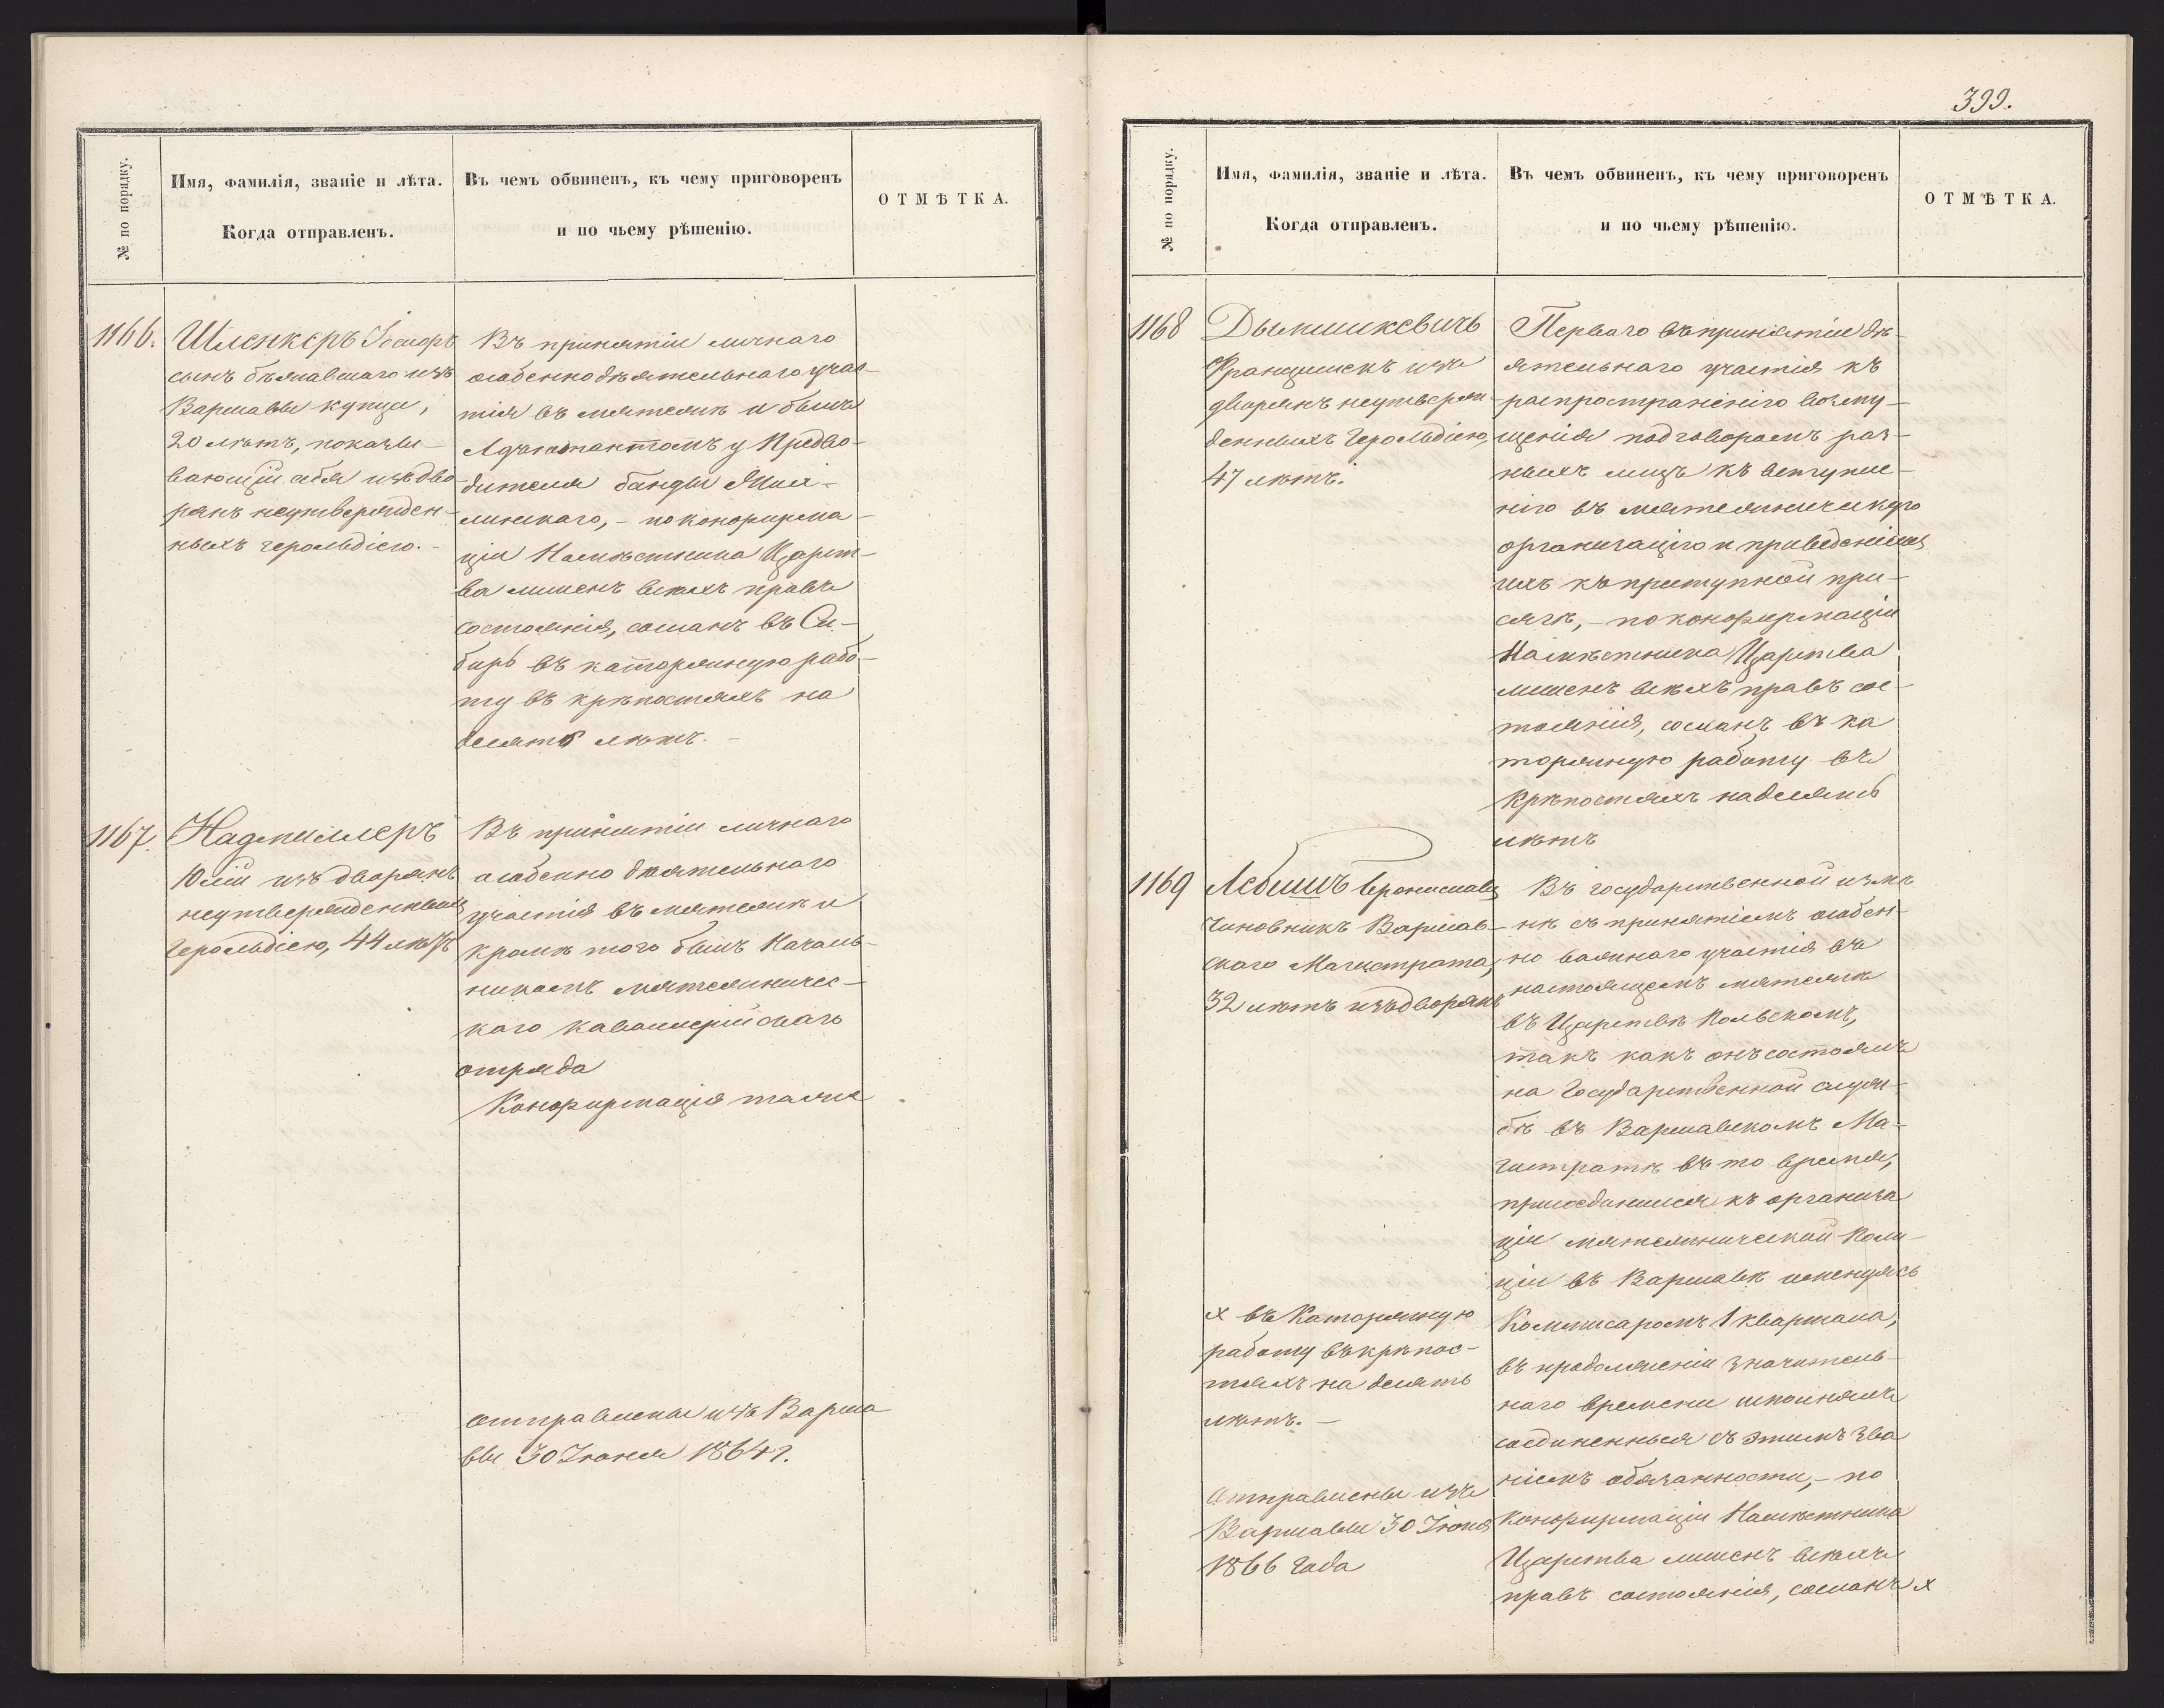 № по порядку.
Имя, фамилія, званіе и лѣта.
Когда отправленъ.
Въ чемъ обвиненъ, къ чему приговоренъ
и по чьему рѣшенію.
ОТМѢТКА.
1166.
Шленкеръ Іосифъ
сынъ бѣжавшаго изъ
Варшавы купца,
20 лѣтъ, показы-
вающій себя изъ дво-
рянъ неутвержден-
ныхъ герольдіею.-
Въ принятіи личнаго
особенно дѣятельнаго учас-
тія въ мятежѣ и былъ
Адъютантомъ у Предво-
дителя банды
линскаго, - по конфирма-
ціи Намѣстника Царст-
ва лишенъ всѣхъ правъ
состоянія, сосланъ въ Си-
бирь въ каторжную рабо-
ту въ крѣпостяхъ на
десять лѣтъ. -
1167.
Надмиллеръ
Юлій изъ дворянъ
неутвержденныхъ
Герольдіею, 44 лѣтъ
Въ принятіи личнаго
особенно дѣятельнаго
участія въ мятежѣ и
кромѣ того былъ Началь-
никомъ мятежничес-
каго кавалерійскаго
отряда
Конфирмація таже
отправлены изъ Варша
вы 30 Іюня 1864 г.
399.
№ по порядку.
Имя, фамилія, званіе и лѣта.
Когда отправленъ.
Въ чемъ обвиненъ, къ чему приговоренъ
и по чьему рѣшенію.
ОТМѢТКА.
1168
Дымшкевичъ
Францишекъ изъ
дворянъ неутверж-
денныхъ Герольдіею,
47 лѣтъ.
Перваго въ принятіи дѣ-
ятельнаго участія къ
распространенію возму-
щенія подговоромъ раз-
ныхъ лицъ къ вступле-
нію въ мятежническую
организацію и приведеніемъ
ихъ къ преступной при-
сягѣ, - по конфирмаціи
Намѣстника Царства
лишенъ всѣхъ правъ сос-
тоянія, сосланъ въ ка
торжную работу въ
крѣпостяхъ на десять
лѣтъ
1169
Лебишъ Брониславъ
Чиновникъ Варшав-
скаго Магистрата,
32 лѣтъ изъ дворянъ
Въ государственной измѣ
нѣ съ принятіемъ особен-
но важнаго участія въ
настоящемъ мятежѣ
въ Царствѣ Польскомъ,
такъ какъ онъ состоялъ
на Государственной служ-
бѣ въ Варшавскомъ Ма-
гистратѣ въ то время,
присоединился къ организа
ціи мятежнической Поли-
ціи въ Варшавѣ именуясь
Коммисаромъ 1 квартала,
въ продолженіи значитель-
наго времени исполнялъ
соединенныя съ этимъ зва
ніемъ обязанности, - по
конфирмаціи Намѣстника
Царства лишенъ всѣхъ
правъ состоянія, сосланъ х
х въ Каторжную
работу въ крѣпос-
тяхъ на десять
лѣтъ. -
Отправлены изъ
Варшавы 30 Іюня
1866 года